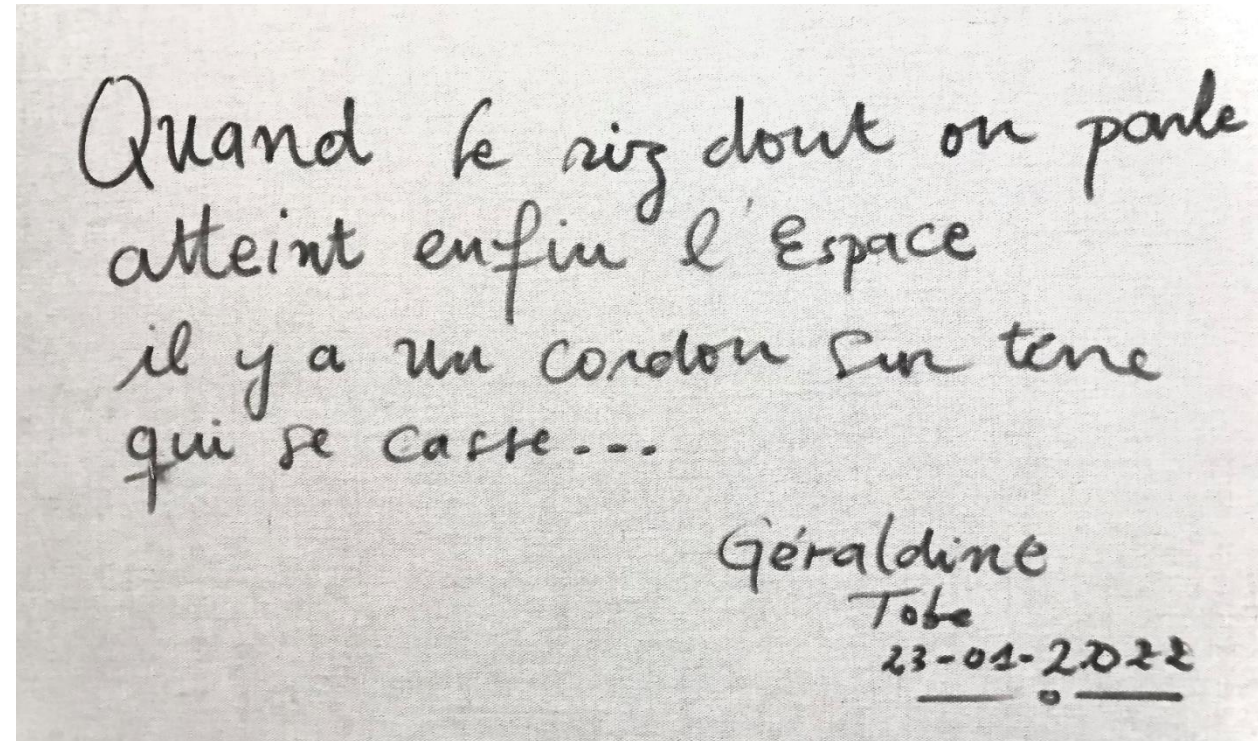 Quand le riz dont on parle
atteint enfin l'Espace
il y a un cordon sur terre
qui se casse...
Géraldine
Tobe
23-01-2022